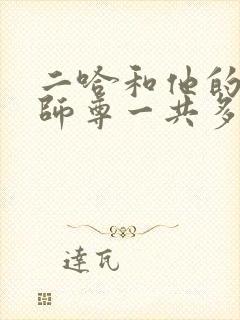 二哈和他的
師尊一共多
達瓦